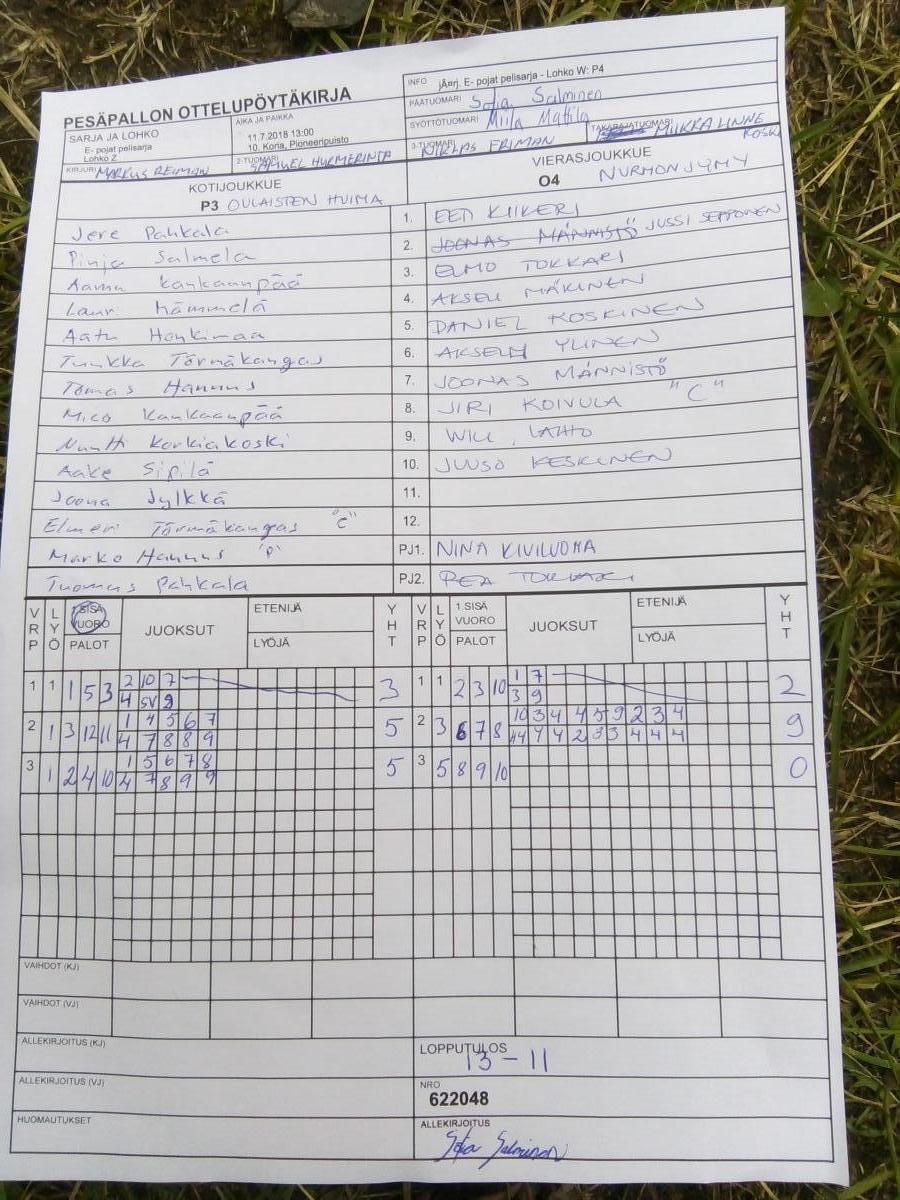 PESÄPALLON OTTELUPÖYTÄKIRJA
INFO jÄ¤rj. E- pojat pelisarja - Lohko W: P4
PÄÄTUOMARI Sofia Salminen
SYÖTTÖTUOMARI Miila Mattila
SARJA JA LOHKO
E- pojat pelisarja
Lohko Z
AIKA JA PAIKKA
11.7.2018 13:00
10. Koria, Pioneeripuisto
3-TUOMARI NIKLAS FRIMAN
TAKARAJATUOMARI MIIKKA LINNE KOSKI
KIRJURI MARKUS REIMAN
2-TUOMARI SAMUEL HURMERINTA
KOTIJOUKKUE
P3 OULAISTEN HUIMA
VIERASJOUKKUE
O4 NURMON JYMY
Jere Pahkala 1. EETI KIIKERI
Pinja Salmela 2. JOONAS MÄNNISTÖ JUSSI SEPPONEN
Aamu Kankaanpää 3. ELMO TOKKARI
Lauri Hämmelä 4. AKSELI MÄKINEN
Aatu Honkimaa 5. DANIEL KOSKINEN
Tuukka Törmäkangas 6. AKSELI YLINEN
Tomas Hannus 7. JOONAS MÄNNISTÖ
Mico Kankaanpää 8. JIRI KOIVULA "C"
Nuutti Korkiakoski 9. WILL LAHTO
Aake Sipilä 10. JUUSO KESKINEN
Joona Jylkkä 11.
Elmeri Törmäkangas "C" 12.
Marko Hannus "P" PJ1. NINA KIVILUOMA
Tuomas Pahkala PJ2.
VRP LYÖ 1.SISÄ VUORO PALOT JUOKSUT ETENIJÄ LYÖJÄ YHT VRP LYÖ 1.SISÄ VUORO PALOT JUOKSUT ETENIJÄ LYÖJÄ YHT
1 1 1 5 3 2 10 7 3 1 1 2 3 10 1 7 2
4 SV 9 3 9
2 1 3 12 11 1 4 5 6 7 5 2 3 6 7 8 10 3 4 4 5 9 2 3 4 9
4 7 8 8 9 4 4 4 2 3 3 4 4 4
3 1 2 4 10 1 5 6 7 8 5 3 5 8 9 10 0
4 7 8 9 9
VAIHDOT (KJ)
VAIHDOT (VJ)
ALLEKIRJOITUS (KJ)
LOPPUTULOS
13 - 11
ALLEKIRJOITUS (VJ)
NRO
622048
HUOMAUTUKSET
ALLEKIRJOITUS
Sofia Salminen